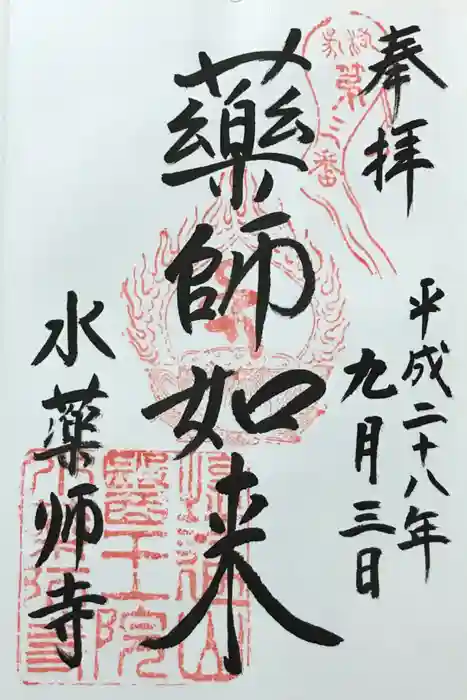 奉拝
平成二十八年
九月三日
藥師如来
水薬师寺
第三番